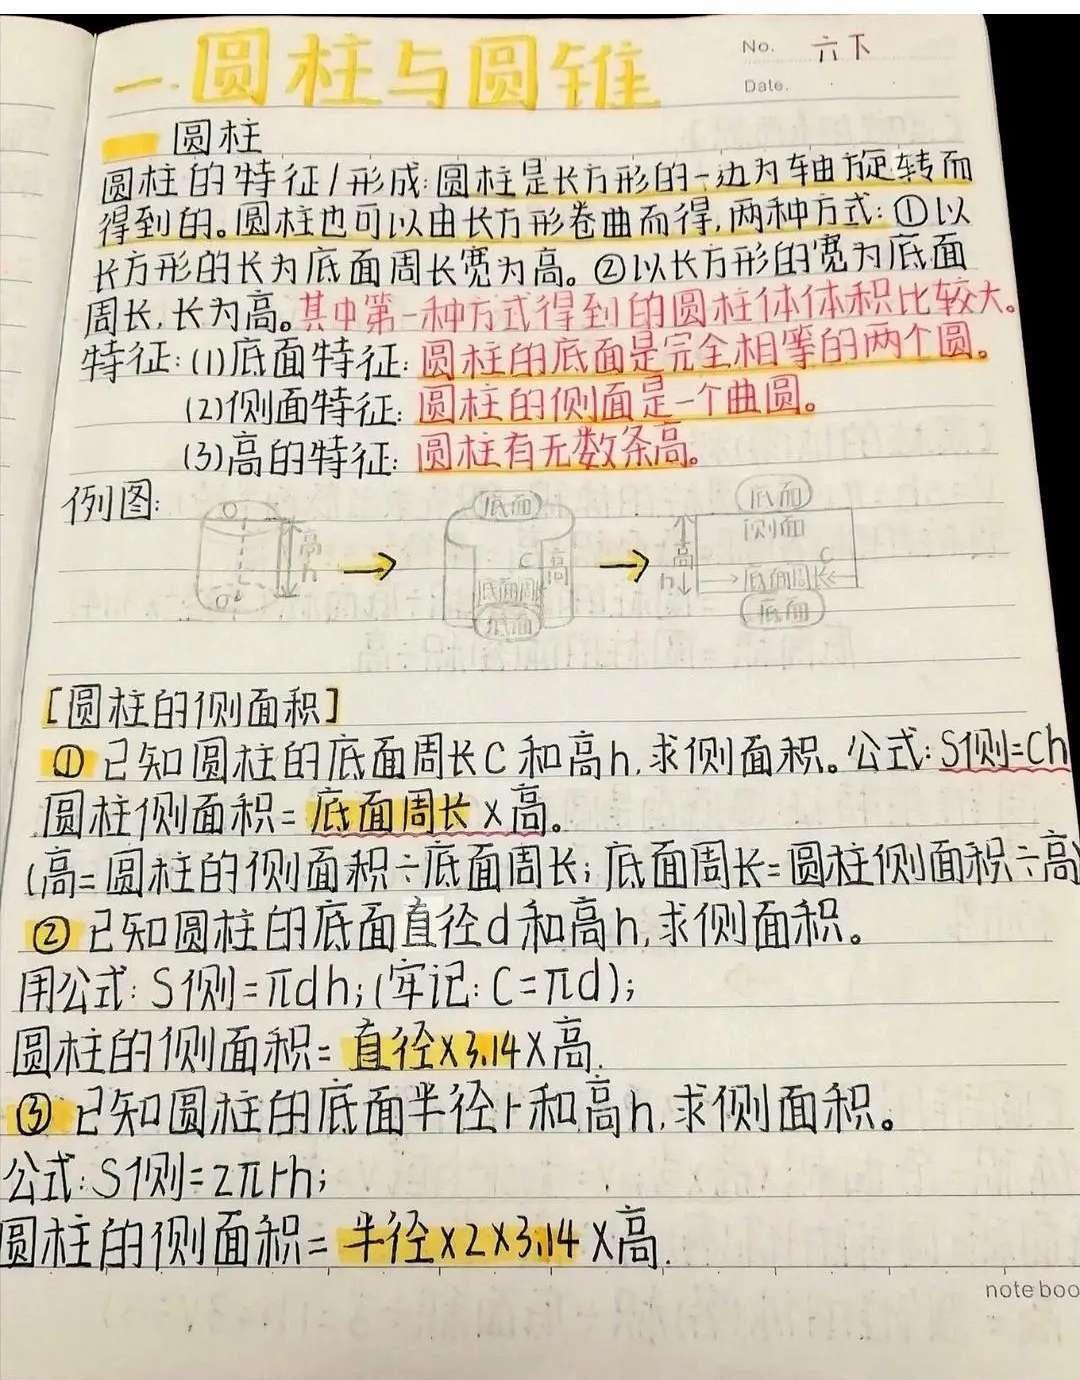 一.圆柱与圆锥
No. 六下
Date.
圆柱
圆柱的特征/形成:圆柱是长方形的一边为轴旋转而
得到的。圆柱也可以由长方形卷曲而得,两种方式:①以
长方形的长为底面周长宽为高。②以长方形的宽为底面
周长,长为高。其中第一种方式得到的圆柱体体积比较大。
特征:(1)底面特征:圆柱的底面是完全相等的两个圆。
(2)侧面特征:圆柱的侧面是一个曲圆。
(3)高的特征:圆柱有无数条高。
例图:
O 高 h O
底面 C 高 底面周 底面
底面 侧面 高 h C 底面周长 底面
[圆柱的侧面积]
①已知圆柱的底面周长C和高h,求侧面积。公式:S侧=Ch
圆柱侧面积=底面周长×高。
(高=圆柱的侧面积÷底面周长;底面周长=圆柱侧面积÷高)
②已知圆柱的底面直径d和高h,求侧面积。
用公式:S侧=πdh;(牢记:C=πd);
圆柱的侧面积=直径×3.14×高.
③已知圆柱的底面半径r和高h,求侧面积。
公式:S侧=2πrh;
圆柱的侧面积=半径×2×3.14×高.
note boo